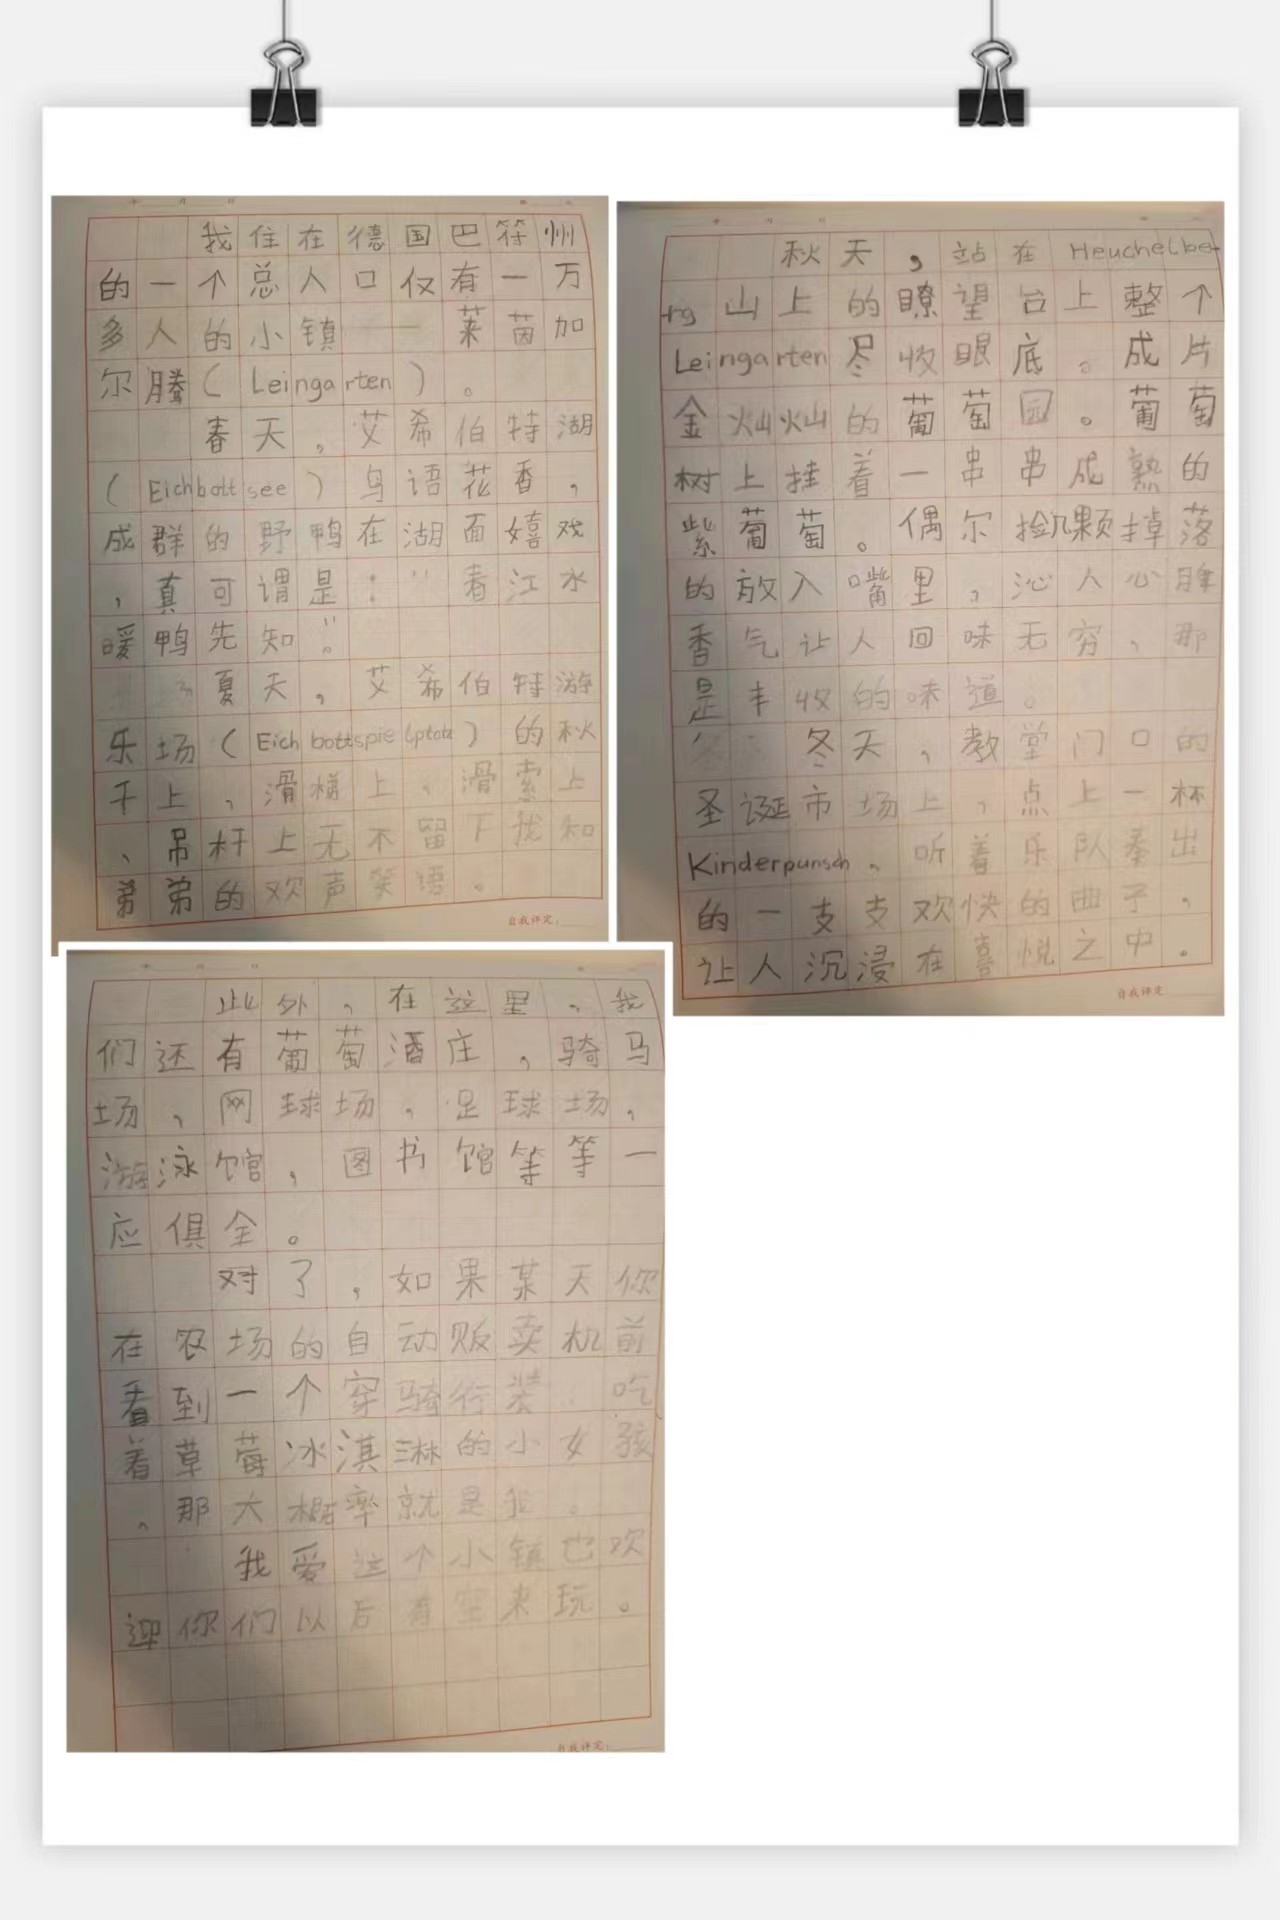 我住在德国巴符州
的一个总人口仅有一万
多人的小镇——莱茵加
尔腾(Leingarten)。
春天,艾希伯特湖
(Eichbottsee)鸟语花香,
成群的野鸭在湖面嬉戏
,真可谓是:"春江水
暖鸭先知"。
夏天,艾希伯特游
乐场(Eichbottspielplatz)的秋
千上,滑梯上,滑索上
、吊杆上无不留下我和
弟弟的欢声笑语。
自我评定:
秋天,站在Heuchelbe
rg山上的瞭望台上整个
Leingarten尽收眼底。成片
金灿灿的葡萄园。葡萄
树上挂着一串串成熟的
紫葡萄。偶尔捡几颗掉落
的放入嘴里,沁人心脾
香气让人回味无穷,那
是丰收的味道。
冬天,教堂门口的
圣诞市场上,点上一杯
Kinderpunsch,听着乐队奏出
的一支支欢快的曲子,
让人沉浸在喜悦之中。
自我评定
此外,在这里,我
们还有葡萄酒庄,骑马
场,网球场,足球场,
游泳馆,图书馆等等一
应俱全。
对了,如果某天你
在农场的自动贩卖机前
看到一个穿骑行装 吃
着草莓冰淇淋的小女孩
,那大概率就是我。
我爱这个小镇也欢
迎你们以后有空来玩。
自我评定: